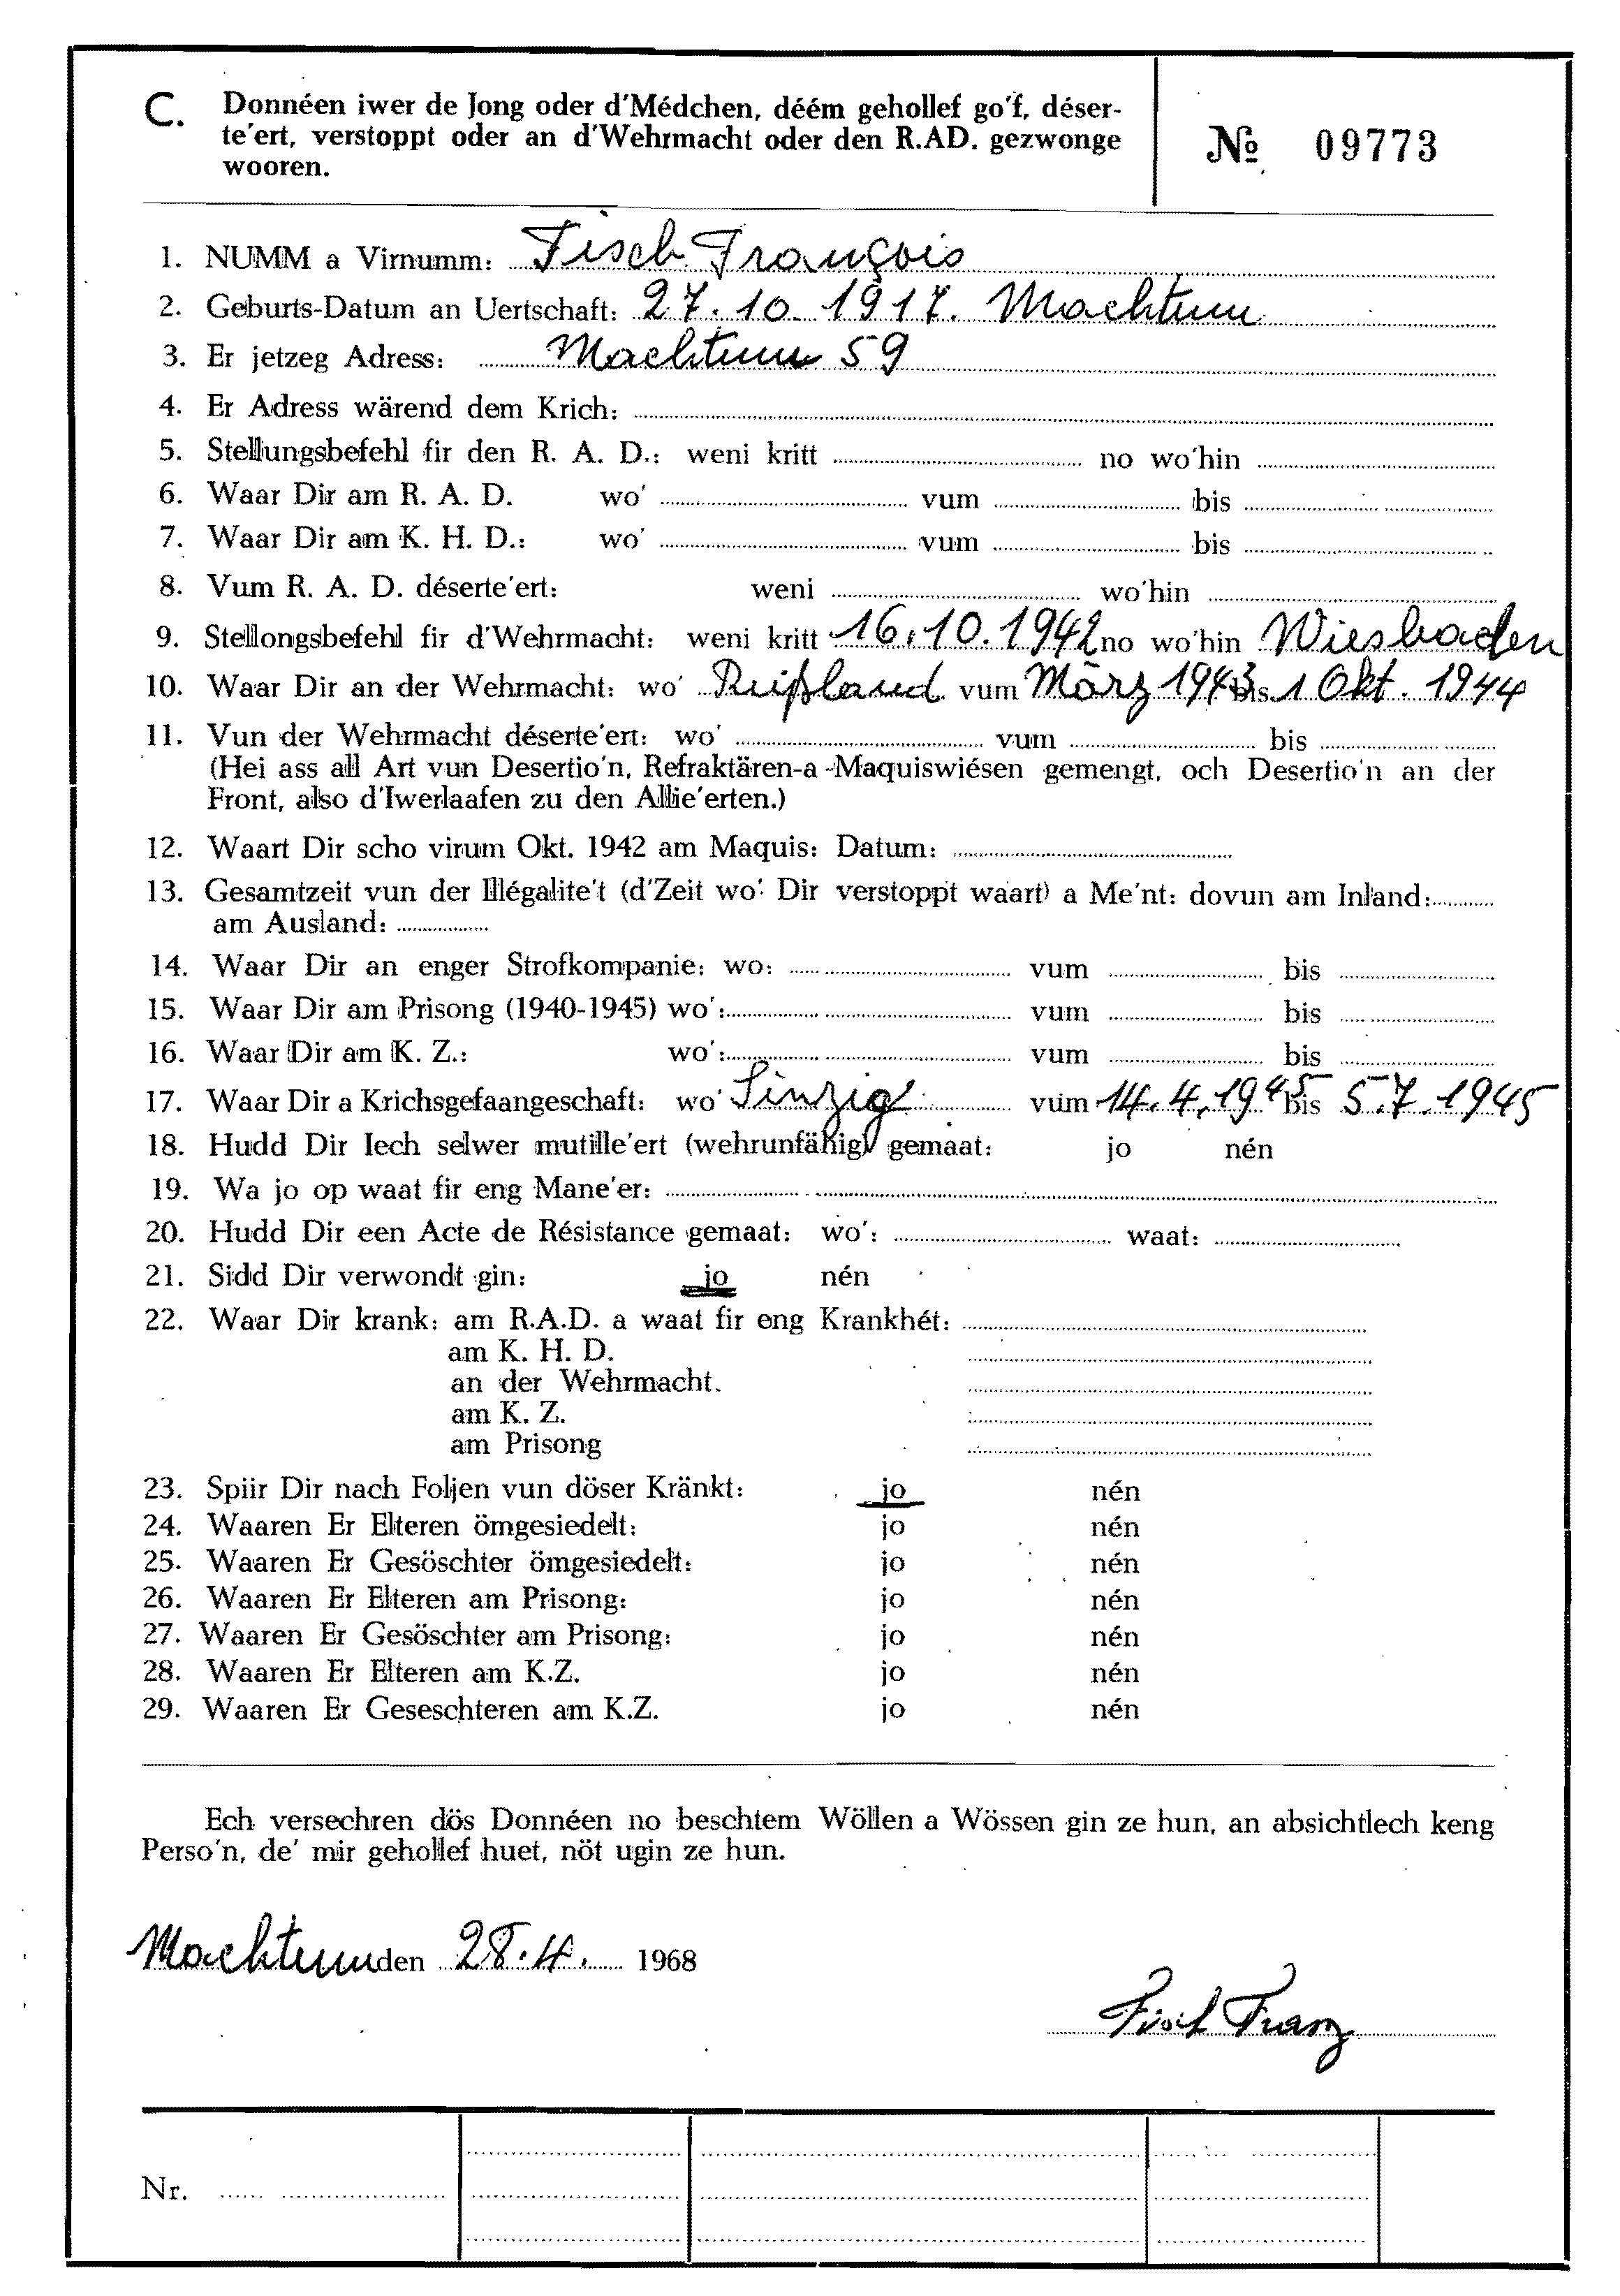 C. Donnéen iwer de Jong oder d'Médchen, déém gehollef go'f, déser-
te'ert, verstoppt oder an d'Wehrmacht oder den R.AD. gezwonge
wooren.
№ 09773
1. NUMM a Virnumm: Fisch François
2. Geburts-Datum an Uertschaft: 27.10.1917. Machtum
3. Er jetzeg Adress: Machtum 59
4. Er Adress wärend dem Krich:
5. Stellungsbefehl fir den R. A. D.: weni kritt no wo'hin
6. Waar Dir am R. A. D. wo' vum bis
7. Waar Dir am K. H. D.: wo' vum bis
8. Vum R. A. D. déserte'ert: weni wo'hin
9. Stellongsbefehl fir d'Wehrmacht: weni kritt 16.10.1942 no wo'hin Wiesbaden
10. Waar Dir an der Wehrmacht: wo' Rußland vum März 1943 bis 1 Okt. 1944
11. Vun der Wehrmacht déserte'ert: wo' vum bis
(Hei ass all Art vun Desertio'n, Refraktären-a-Maquiswiésen gemengt, och Desertio'n an der
Front, also d'Iwerlaafen zu den Allie'erten.)
12. Waart Dir scho virum Okt. 1942 am Maquis: Datum:
13. Gesamtzeit vun der Illégalite't (d'Zeit wo' Dir verstoppt waart) a Me'nt: dovun am Inland:
am Ausland:
14. Waar Dir an enger Strofkompanie: wo: vum bis
15. Waar Dir am Prisong (1940-1945) wo': vum bis
16. Waar Dir am K. Z.: wo': vum bis
17. Waar Dir a Krichsgefaangeschaft: wo' Sinzig vum 14.4.1945 bis 5.7.1945
18. Hudd Dir Iech selwer mutille'ert (wehrunfähig) gemaat: jo nén
19. Wa jo op waat fir eng Mane'er:
20. Hudd Dir een Acte de Résistance gemaat: wo': waat:
21. Sidd Dir verwondt gin: jo nén
22. Waar Dir krank: am R.A.D. a waat fir eng Krankhét:
am K. H. D.
an der Wehrmacht.
am K. Z.
am Prisong
23. Spiir Dir nach Foljen vun döser Kränkt: jo nén
24. Waaren Er Elteren ömgesiedelt: jo nén
25. Waaren Er Gesöschter ömgesiedelt: jo nén
26. Waaren Er Elteren am Prisong: jo nén
27. Waaren Er Gesöschter am Prisong: jo nén
28. Waaren Er Elteren am K.Z. jo nén
29. Waaren Er Geseschteren am K.Z. jo nén
Ech versechren dös Donnéen no beschtem Wöllen a Wössen gin ze hun, an absichtlech keng
Perso'n, de' mir gehollef huet, nöt ugin ze hun.
Machtum den 28.4. 1968
Fisch Franz
Nr.